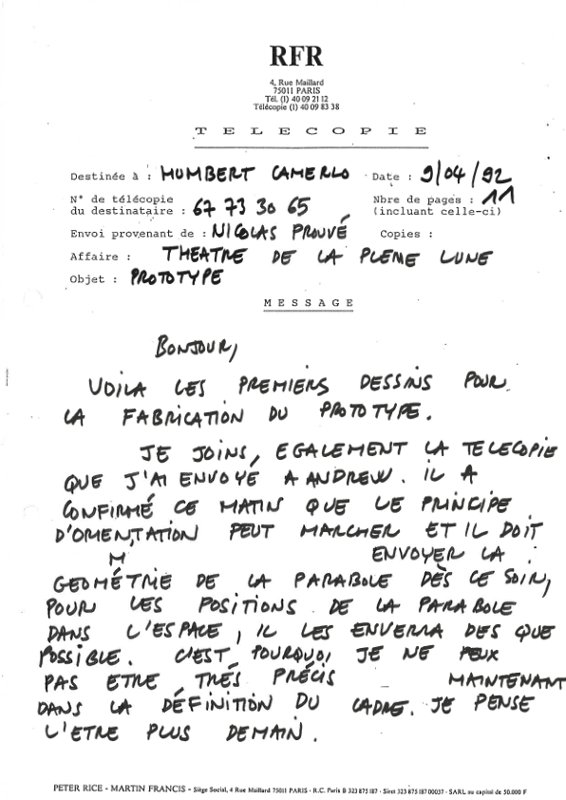 RFR
4, Rue Maillard
75011 PARIS
Tél. (1) 40 09 21 12
Télécopie (1) 40 09 83 38
TELECOPIE
Destinée à : HUMBERT CAMERLO Date : 9/04/92
N° de télécopie Nbre de pages : 11
du destinataire : 67 73 30 65 (incluant celle-ci)
Envoi provenant de : NICOLAS PROUVÉ Copies :
Affaire : THEATRE DE LA PLEINE LUNE
Objet : PROTOTYPE
MESSAGE
BONJOUR,
VOILA LES PREMIERS DESSINS POUR
LA FABRICATION DU PROTOTYPE.
JE JOINS, EGALEMENT LA TELECOPIE
QUE J'AI ENVOYÉ A ANDREW. IL A
CONFIRMÉ CE MATIN QUE LE PRINCIPE
D'ORIENTATION PEUT MARCHER ET IL DOIT
M ENVOYER LA
GEOMÉTRIE DE LA PARABOLE DÈS CE SOIR,
POUR LES POSITIONS DE LA PARABOLE
DANS L'ESPACE, IL LES ENVERRA DES QUE
POSSIBLE. C'EST POURQUOI JE NE PEUX
PAS ETRE TRÉS PRÉCIS MAINTENANT
DANS LA DÉFINITION DU CADRE. JE PENSE
L'ETRE PLUS DEMAIN.
PETER RICE - MARTIN FRANCIS - Siège Social, 4 Rue Maillard 75011 PARIS - R.C. Paris B 323 875 187 - Siret 323 875 187 00037 - SARL au capital de 50.000 F